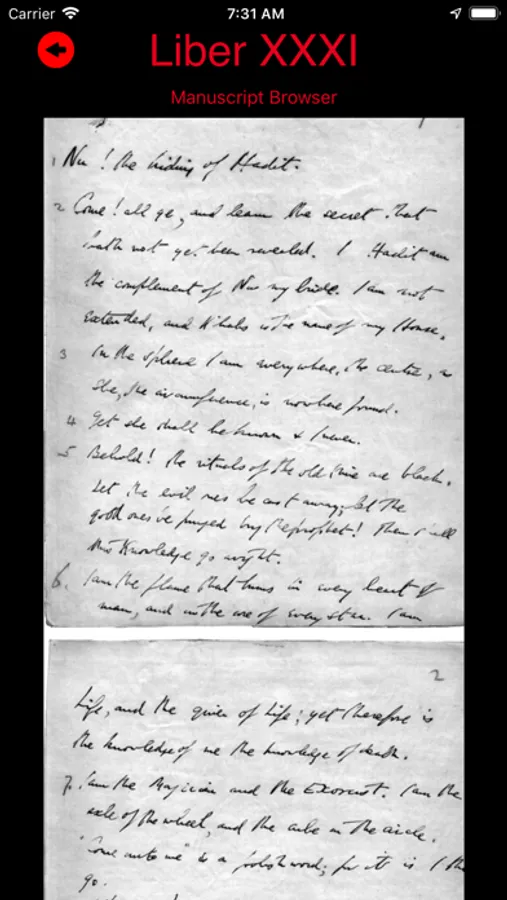 Carrier 7:31 AM
Liber XXXI
Manuscript Browser
1 Nu! the hiding of Hadit.
2 Come! all ye, and learn the secret that
hath not yet been revealed. I Hadit am
the complement of Nu my bride. I am not
extended, and Khabs is the name of my House.
3 In the sphere I am everywhere, the centre, as
she, the circumference, is nowhere found.
4 Yet she shall be known & I never.
5 Behold! the rituals of the old time are black.
Let the evil ones be cast away; let the
good ones be purged by the prophet! Then shall
this Knowledge go aright.
6. I am the flame that burns in every heart of
man, and in the core of every star. I am
2
Life, and the giver of Life; yet therefore is
the knowledge of me the knowledge of death.
7. I am the Magician and the Exorcist. I am the
axle of the wheel, and the cube in the circle.
"Come unto me" is a foolish word; for it is I that
go.